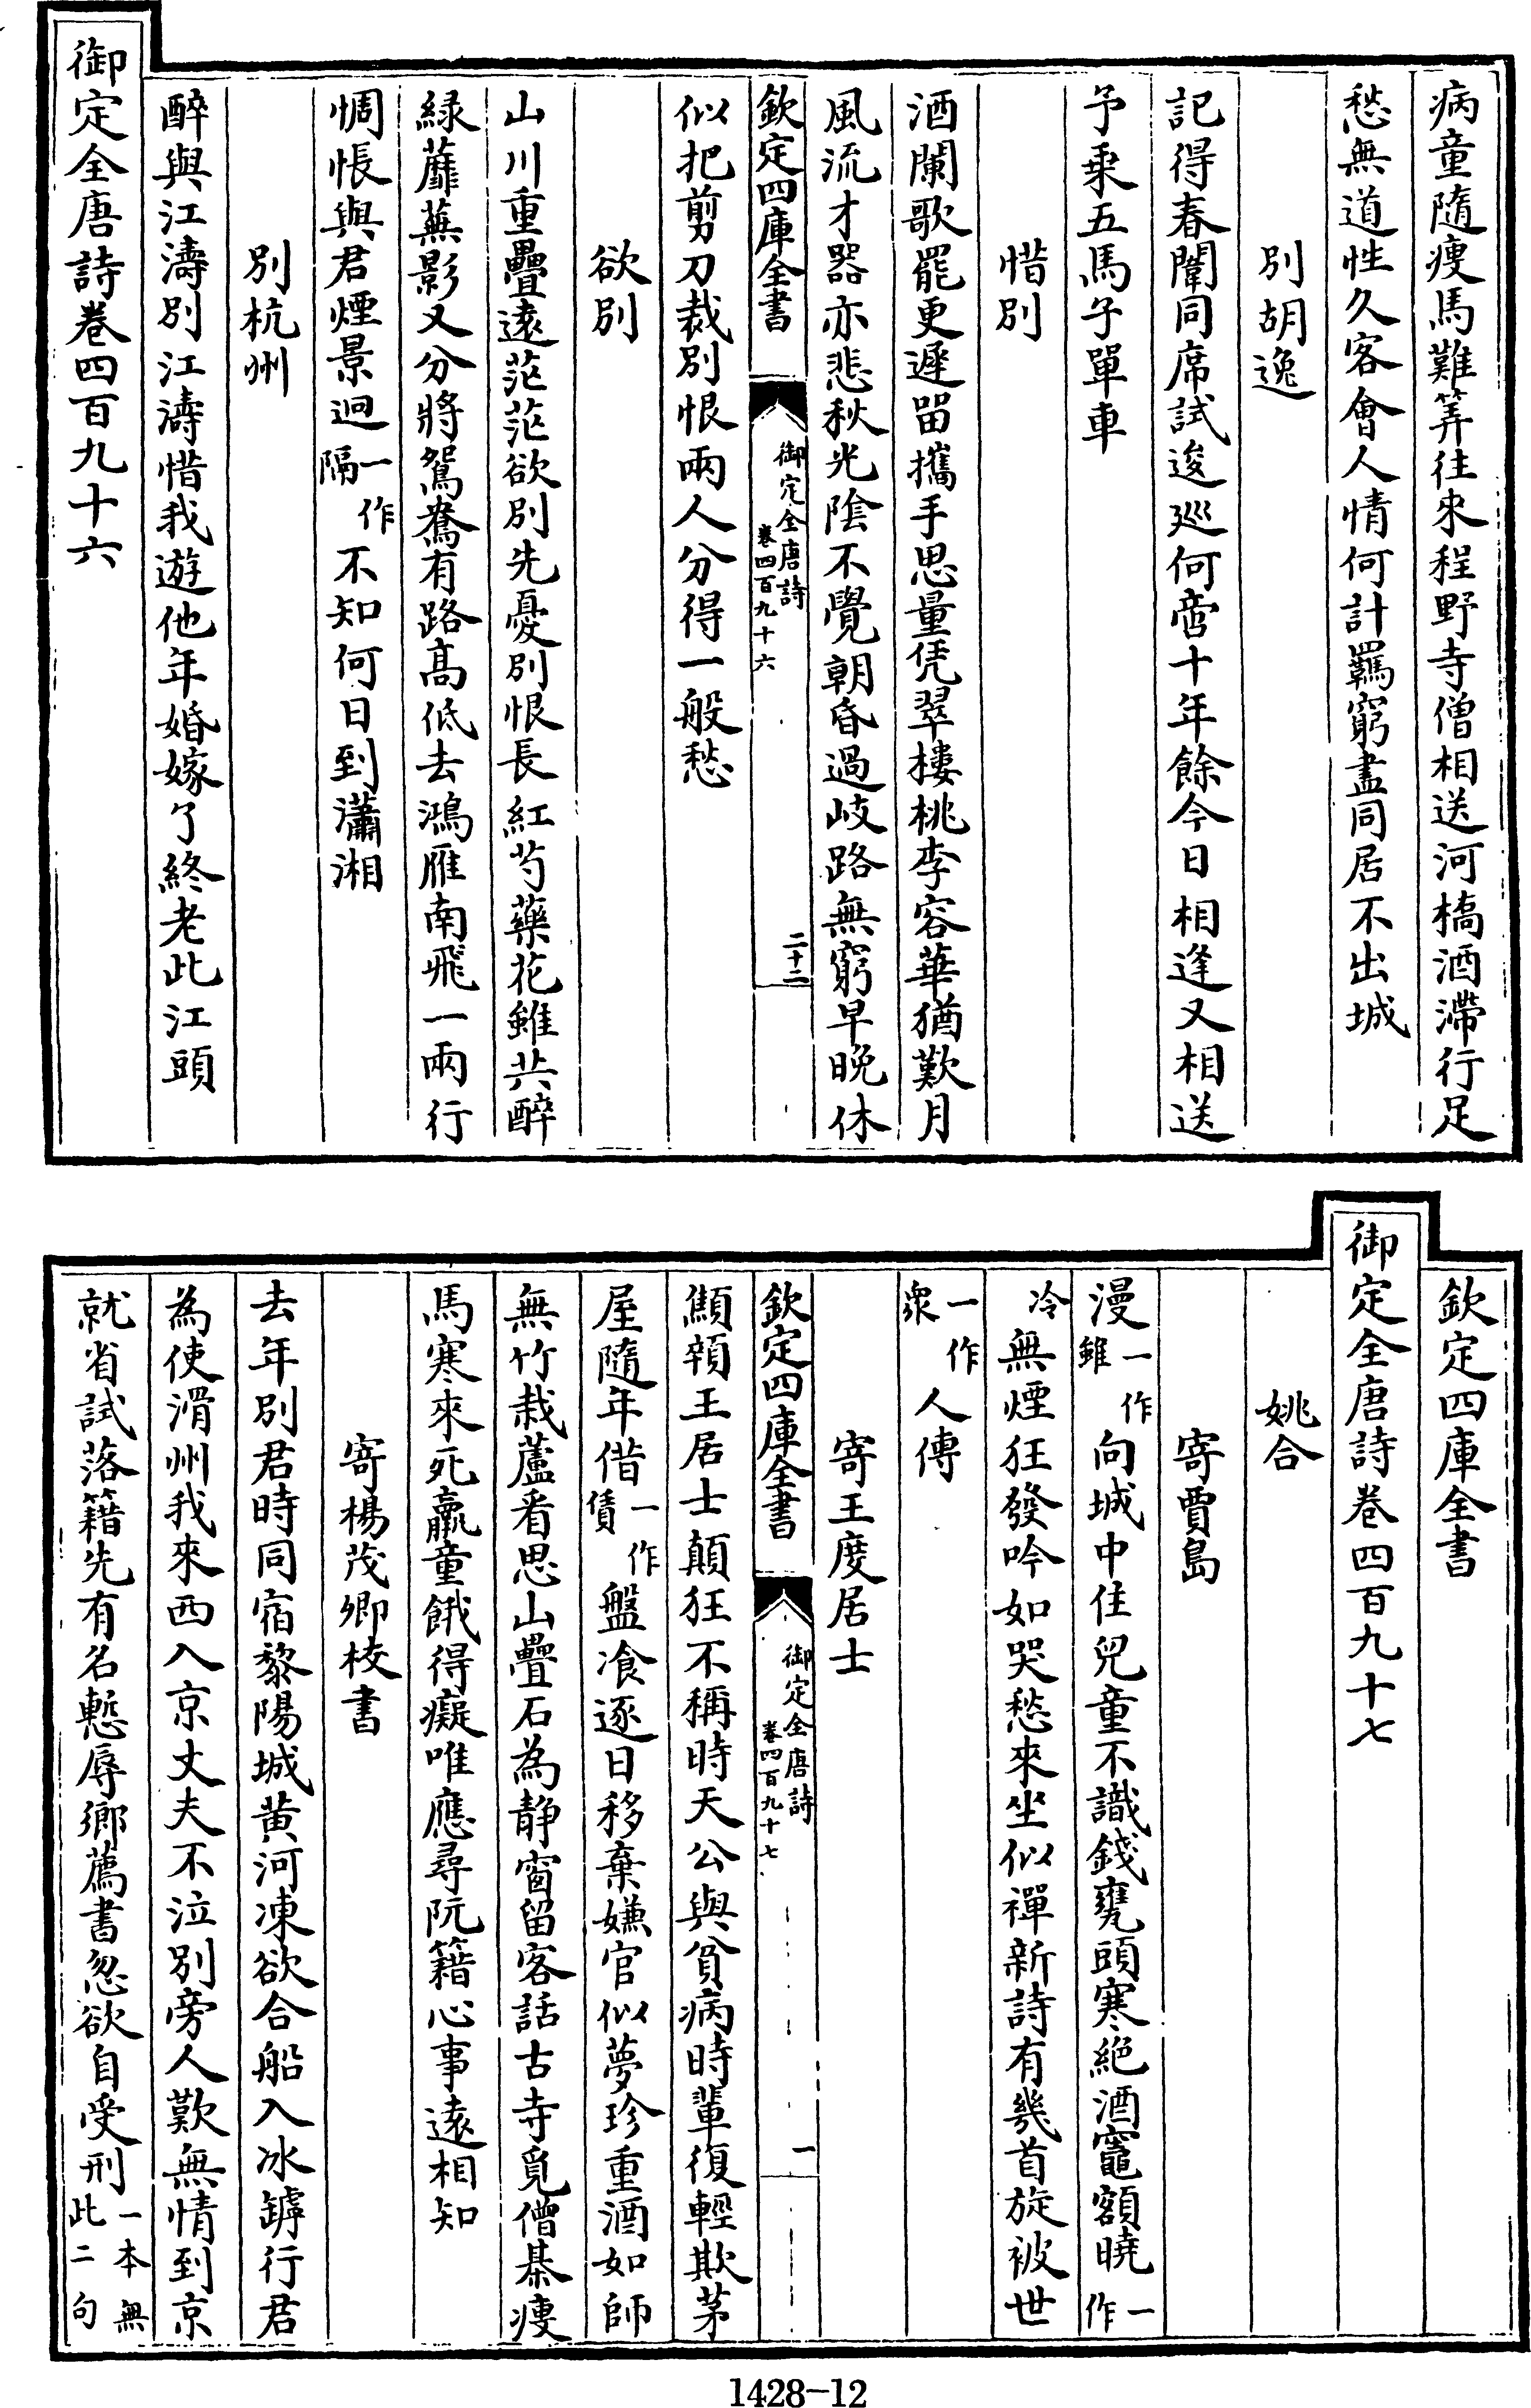 病童隨瘦馬難筭往來程野寺僧相送河橋酒滯行足
愁無道性久客會人情何計羈窮盡同居不出城
別胡逸
記得春闈同席試逡巡何啻十年餘今日相逢又相送
予乗五馬子單車
惜別
酒闌歌罷更遲留攜手思量凭翠樓桃李容華猶歎月
風流才器亦悲秋光陰不覺朝昏過岐路無窮早晚休
欽定四庫全書
御定全唐詩
卷四百九十六
二十二
似把剪刀裁別恨兩人分得一般愁
欲別
山川重疊遠茫茫欲別先憂別恨長紅芍藥花雖共醉
緑蘼蕪影又分將鴛鴦有路髙低去鴻雁南飛一兩行
惆悵與君煙景迥一作隔不知何日到瀟湘
別杭州
醉與江濤別江濤惜我遊他年婚嫁了終老此江頭
御定全唐詩卷四百九十六
欽定四庫全書
御定全唐詩卷四百九十七
姚合
寄賈島
漫一作雖向城中住兒童不識錢甕頭寒絕酒竈額曉一作
冷無煙狂發吟如哭愁來坐似禪新詩有幾首旋被世
一作衆人傳
寄王度居士
欽定四庫全書
御定全唐詩
卷四百九十七
一
顦顇王居士顛狂不稱時天公與貧病時輩復輕欺茅
屋隨年借一作賃盤飡逐日移棄嫌官似夢珍重酒如師
無竹栽蘆看思山疊石為静窗留客話古寺覓僧棊瘦
馬寒來死羸童餓得癡唯應尋阮籍心事遠相知
寄楊茂卿校書
去年別君時同宿黎陽城黄河凍欲合船入冰罅行君
為使滑州我來西入京丈夫不泣別旁人歎無情到京
就省試落籍先有名慙辱鄉薦書忽欲自受刑一本無此二句
1428-12